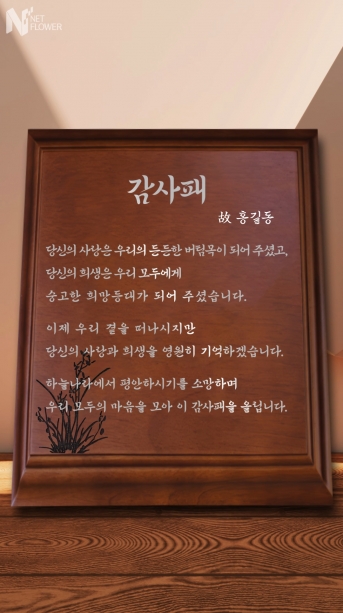 NET
FLOWER
감사패
故 홍길동
당신의 사랑은 우리의 든든한 버팀목이 되어 주셨고,
당신의 희생은 우리 모두에게
숭고한 희망등대가 되어 주셨습니다.
이제 우리 곁을 떠나시지만
당신의 사랑과 희생을 영원히 기억하겠습니다.
하늘나라에서 평안하시기를 소망하며
우리 모두의 마음을 모아 이 감사패을 올립니다.